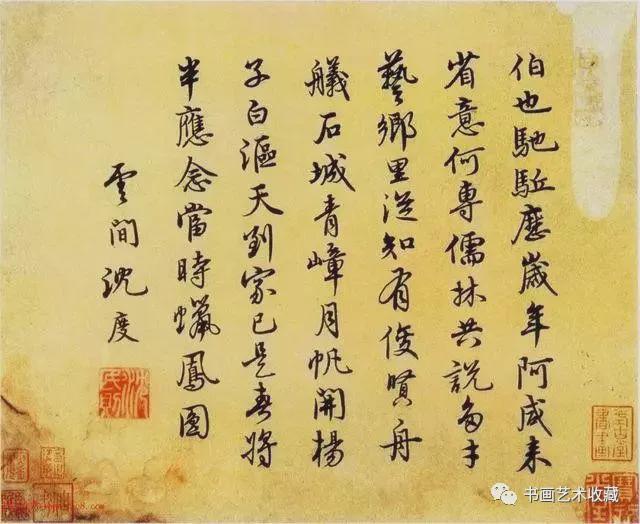 伯也馳駈歷歲年阿咸来
省意何專儒林共說多才
藝鄉里從知有俊賢舟
艤石城青嶂月帆開楊
子白漚天到家已是春将
半應念當時蠟鳳圓
雲間沈度
沈民則
书画艺术收藏